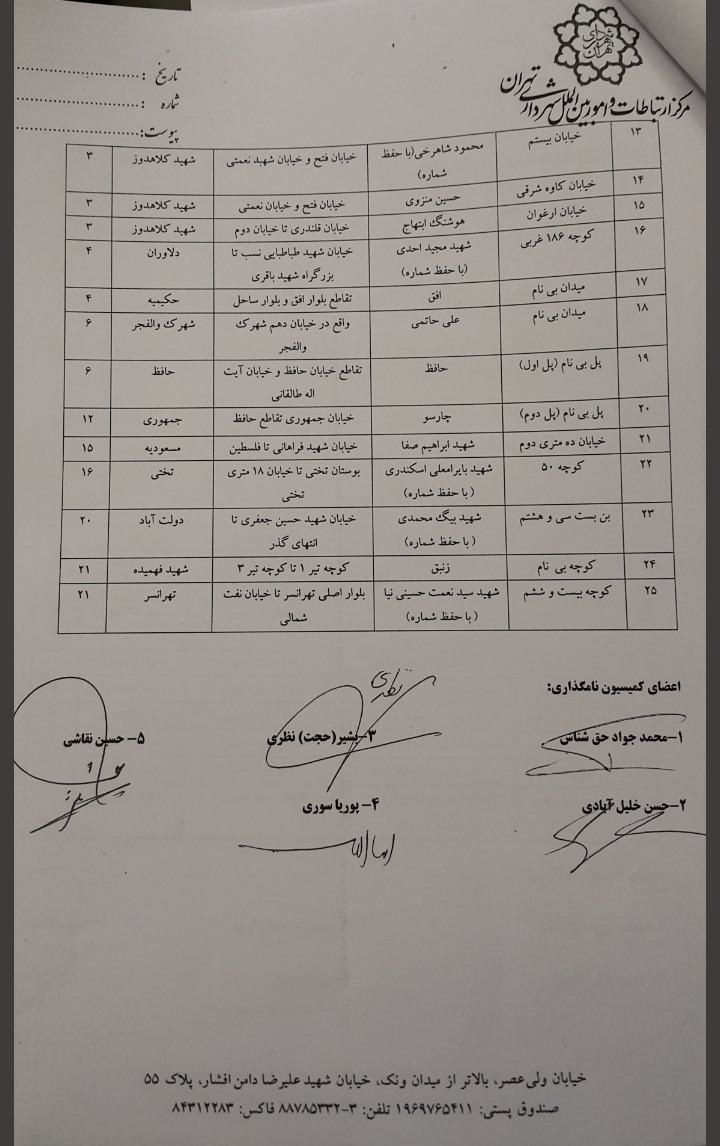 شهرداری تهران
مرکز ارتباطات و امور بین الملل شهرداری تهران
تاریخ :
شماره :
پیوست:
۱۳ خیابان بیستم محمود شاهرخی(با حفظ شماره) خیابان فتح و خیابان شهید نعمتی شهید کلاهدوز ۳
۱۴ خیابان کاوه شرقی حسین منزوی خیابان فتح و خیابان نعمتی شهید کلاهدوز ۳
۱۵ خیابان ارغوان هوشنگ ابتهاج خیابان قلندری تا خیابان دوم شهید کلاهدوز ۳
۱۶ کوچه ۱۸۶ غربی شهید مجید احدی (با حفظ شماره) خیابان شهید طباطبایی نسب تا بزرگراه شهید باقری دلاوران ۴
۱۷ میدان بی نام افق تقاطع بلوار افق و بلوار ساحل حکیمیه ۴
۱۸ میدان بی نام علی حاتمی واقع در خیابان دهم شهرک والفجر شهرک والفجر ۶
۱۹ پل بی نام (پل اول) حافظ تقاطع خیابان حافظ و خیابان آیت اله طالقانی حافظ ۶
۲۰ پل بی نام (پل دوم) چارسو خیابان جمهوری تقاطع حافظ جمهوری ۱۲
۲۱ خیابان ده متری دوم شهید ابراهیم صفا خیابان شهید فراهانی تا فلسطین مسعودیه ۱۵
۲۲ کوچه ۵۰ شهید بایرامعلی اسکندری (با حفظ شماره) بوستان تختی تا خیابان ۱۸ متری تختی تختی ۱۶
۲۳ بن بست سی و هشتم شهید بیگ محمدی (با حفظ شماره) خیابان شهید حسین جعفری تا انتهای گذر دولت آباد ۲۰
۲۴ کوچه بی نام زنبق کوچه تیر ۱ تا کوچه تیر ۳ شهید فهمیده ۲۱
۲۵ کوچه بیست و ششم شهید سید نعمت حسینی نیا (با حفظ شماره) بلوار اصلی تهرانسر تا خیابان نفت شمالی تهرانسر ۲۱
اعضای کمیسیون نامگذاری:
۱-محمد جواد حق شناس ۳-بشیر(حجت) نظری ۵- حسین نقاشی
۲-حسن خلیل آبادی ۴- پوریا سوری
خیابان ولی‌عصر، بالاتر از میدان ونک، خیابان شهید علیرضا دامن افشار، پلاک ۵۵
صندوق پستی: ۱۹۶۹۷۶۵۴۱۱ تلفن: ۳-۸۸۷۸۵۳۳۲ فاکس: ۸۴۳۱۲۲۸۳